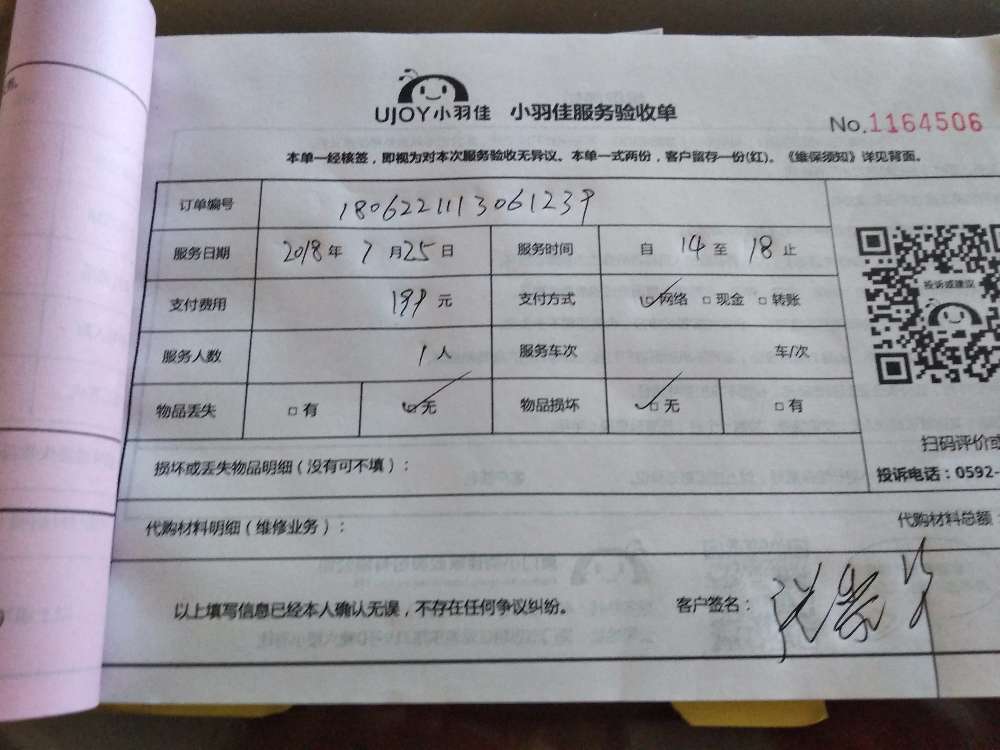 UJOY小羽佳 小羽佳服务验收单
No.1164506
本单一经核签，即视为对本次服务验收无异议。本单一式两份，客户留存一份(红)。《维保须知》详见背面。
订单编号 1806221113061239
服务日期 2018年 7月25日 服务时间 自 14 至 18 止
支付费用 199 元 支付方式 ☑网络 □现金 □转账
服务人数 1人 服务车次 车/次
物品丢失 □有 ☑无 物品损坏 ☑无 □有
投诉或建议
扫码评价或
投诉电话：0592-
损坏或丢失物品明细（没有可不填）：
代购材料明细（维修业务）：
代购材料总额：
以上填写信息已经本人确认无误，不存在任何争议纠纷。 客户签名：